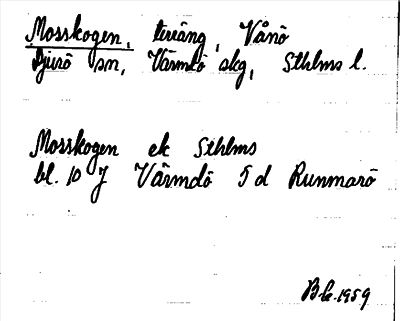 Mosskogen, teräng, Vånö
Djurö sn, Värmdö skg, Sthlms l.
Mosskogen ek Sthlms
bl. 10 J Värmdö 5 d Runmarö
Ble. 1959